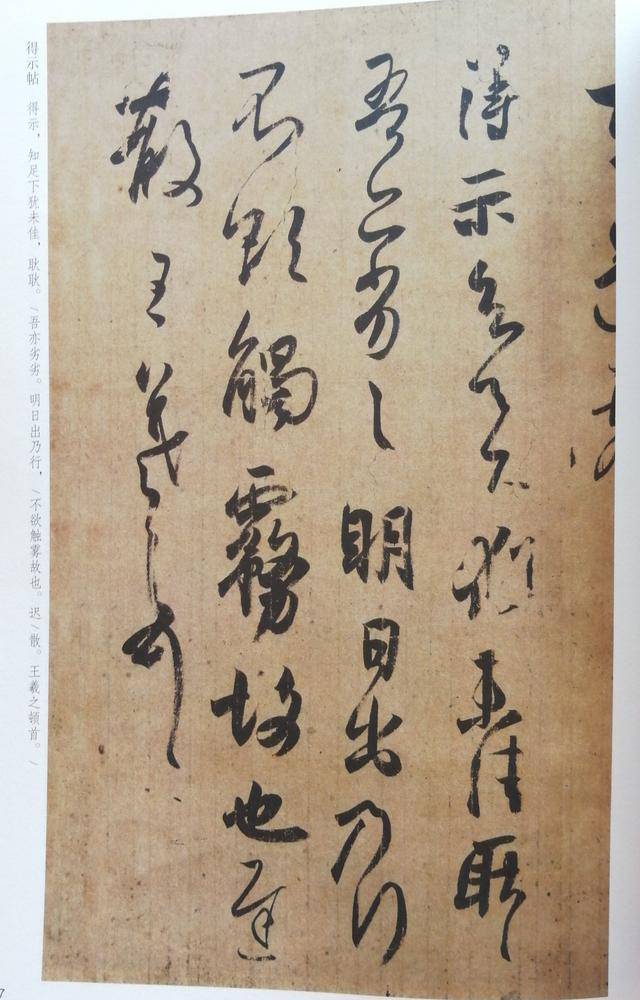 得示知足下猶未佳耿々
吾亦劣々明日出乃行
不欲觸霧故也遲
散王羲之頓首
得示帖 得示，知足下犹未佳，耿耿。\吾亦劣劣。明日出乃行，\不欲触雾故也。迟\散。王羲之顿首。\
7